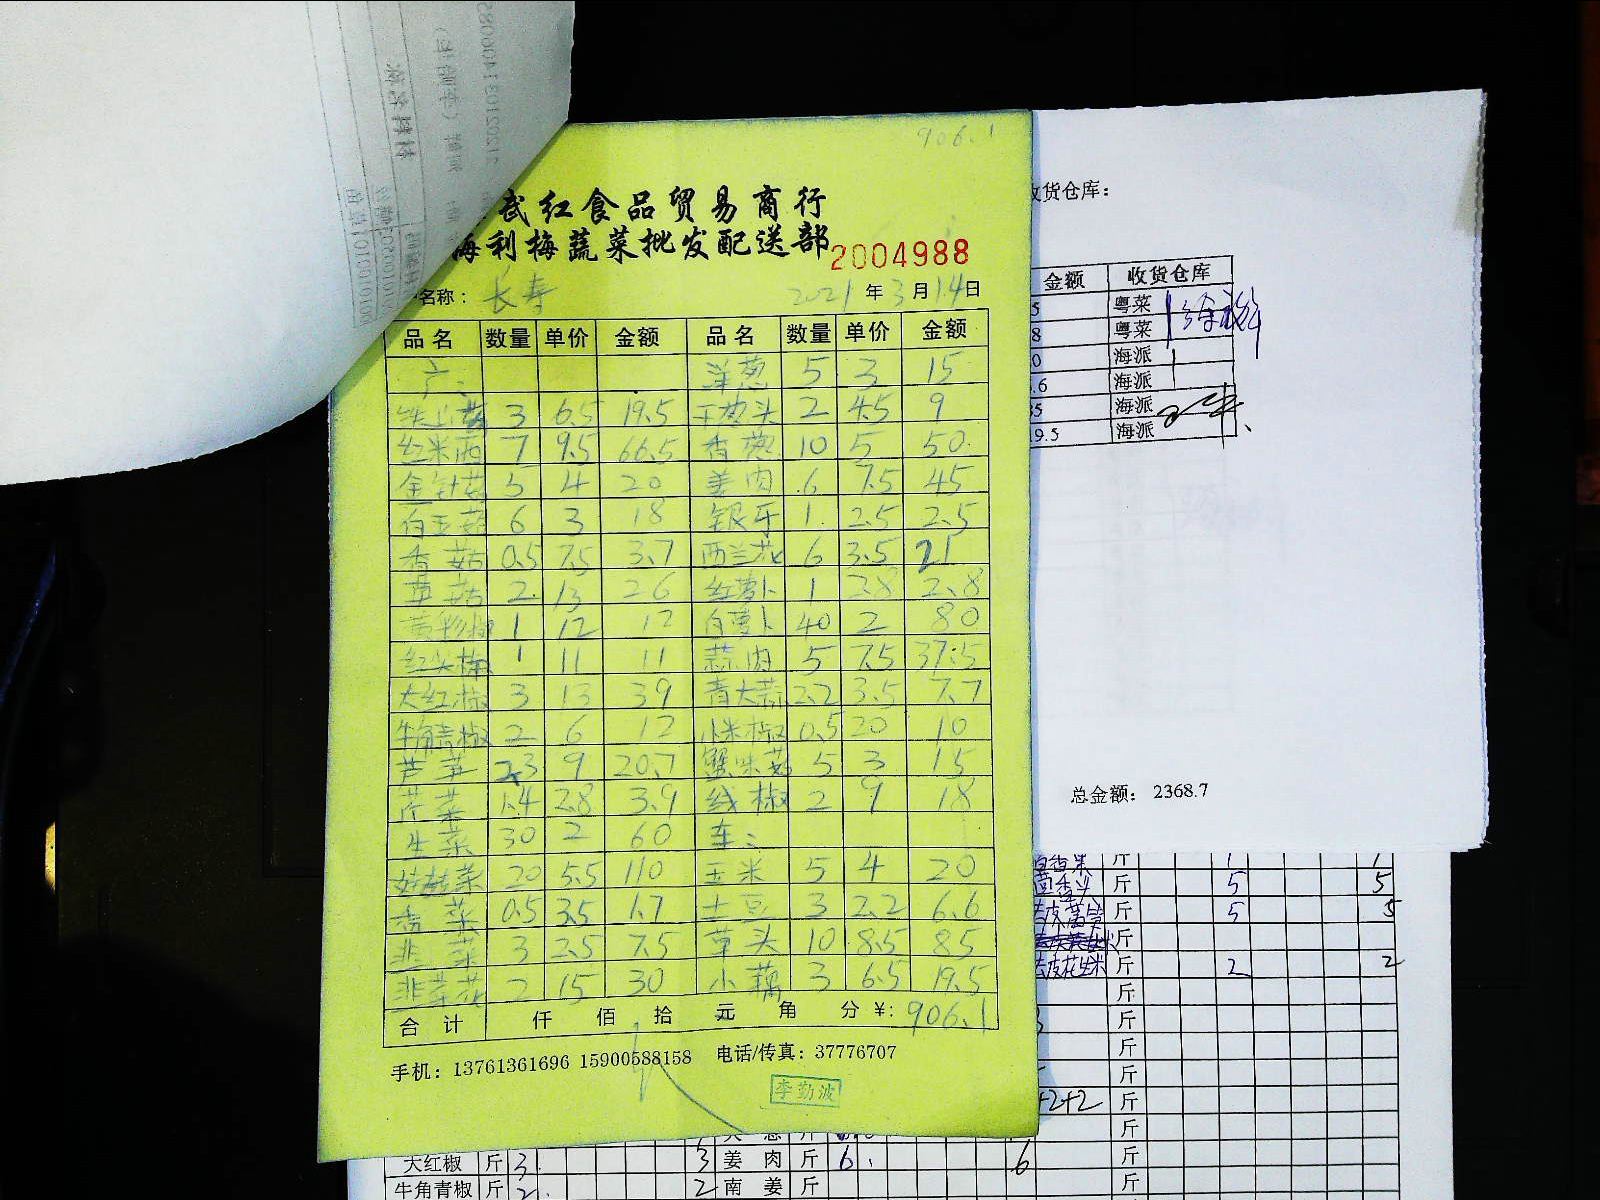 906.1
武红食品贸易商行
海利梅蔬菜批发配送部 2004988
名称： 长寿 2021 年 3 月 14 日
品名 数量 单价 金额 品名 数量 单价 金额
广： 洋葱 5 3 15
3 6.5 19.5 干葱头 2 4.5 9
红米西 7 9.5 66.5 香葱 10 5 50
金针菇 5 4 20 姜肉 6 7.5 45
白玉菇 6 3 18 银牙 1 2.5 2.5
香菇 0.5 7.5 3.7 西兰花 6 3.5 21
草菇 2 13 26 红萝卜 1 2.8 2.8
黄彩椒 1 12 12 白萝卜 40 2 80
红尖椒 1 11 11 蒜肉 5 7.5 37.5
大红椒 3 13 39 青大蒜 2.2 3.5 7.7
牛角青椒 2 6 12 小米椒 0.5 20 10
芦笋 2.3 9 20.7 蟹味菇 5 3 15
芹菜 1.4 2.8 3.9 线椒 2 9 18
生菜 30 2 60 车：
20 5.5 110 玉米 5 4 20
香菜 0.5 3.5 1.7 土豆 3 2.2 6.6
韭菜 3 2.5 7.5 草头 10 8.5 85
韭菜花 2 15 30 小藕 3 6.5 19.5
合计 仟 佰 拾 元 角 分 ¥: 906.1
手机：13761361696 15900588158 电话/传真：37776707
李勤波
收货仓库：
金额 收货仓库
5 粤菜
8 粤菜
0 海派
.6 海派
35 海派
19.5 海派
总金额： 2368.7
斤 1 1
斤 5 5
斤 5 5
斤
去皮花生米 斤 2 2
斤
斤
斤
斤
+2+2 斤
斤
大红椒 斤 3 3 姜肉 斤 6 6 斤
牛角青椒 斤 2 2 南姜 斤 斤